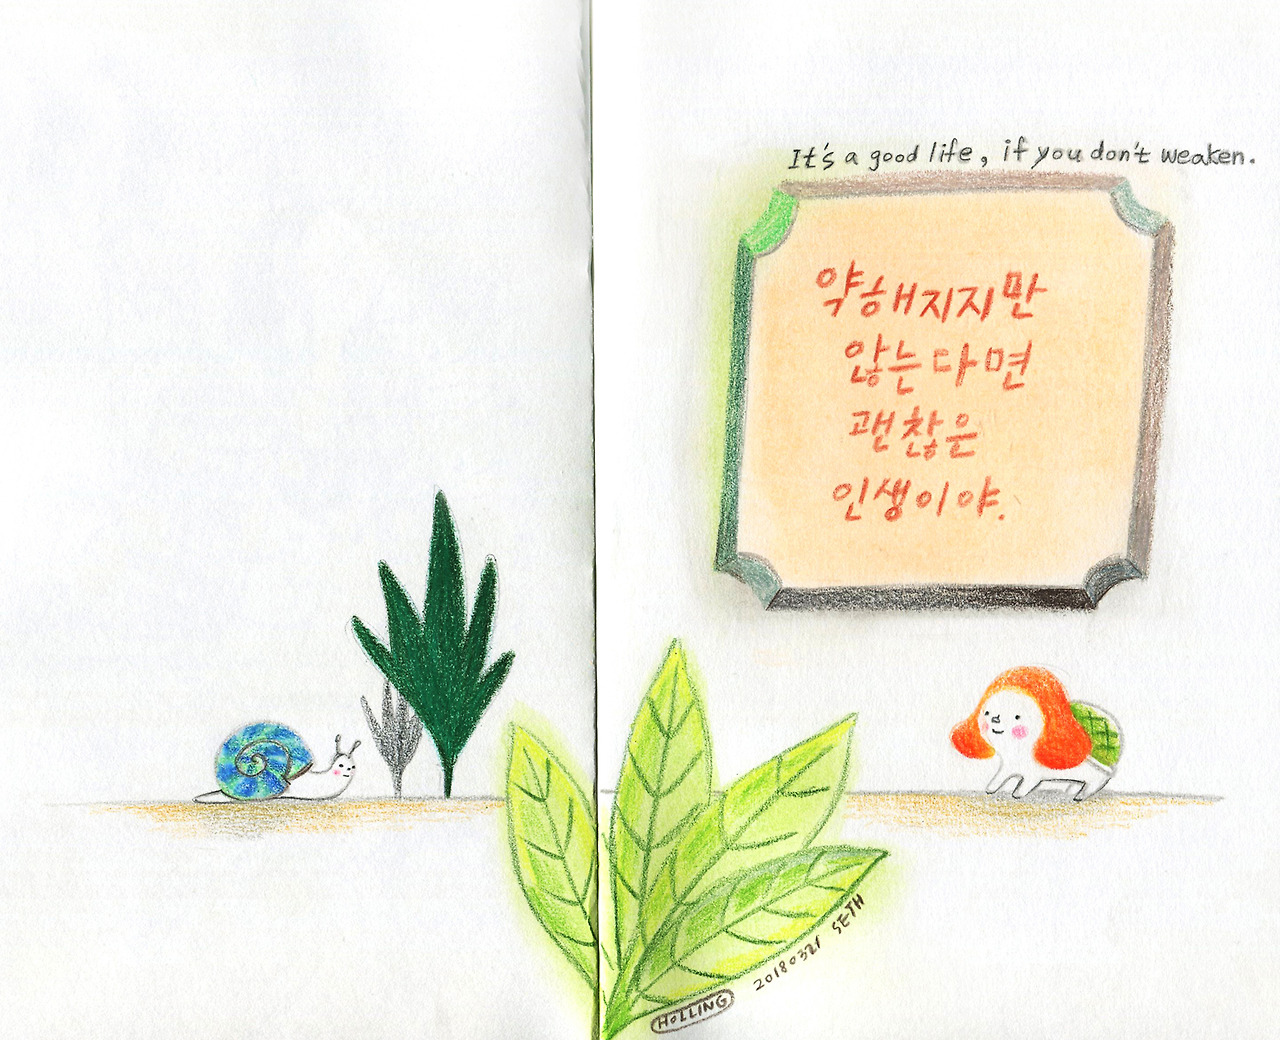 It's a good life, if you don't weaken.
약해지지만
않는다면
괜찮은
인생이야.
HOLLING 20180321 SETH